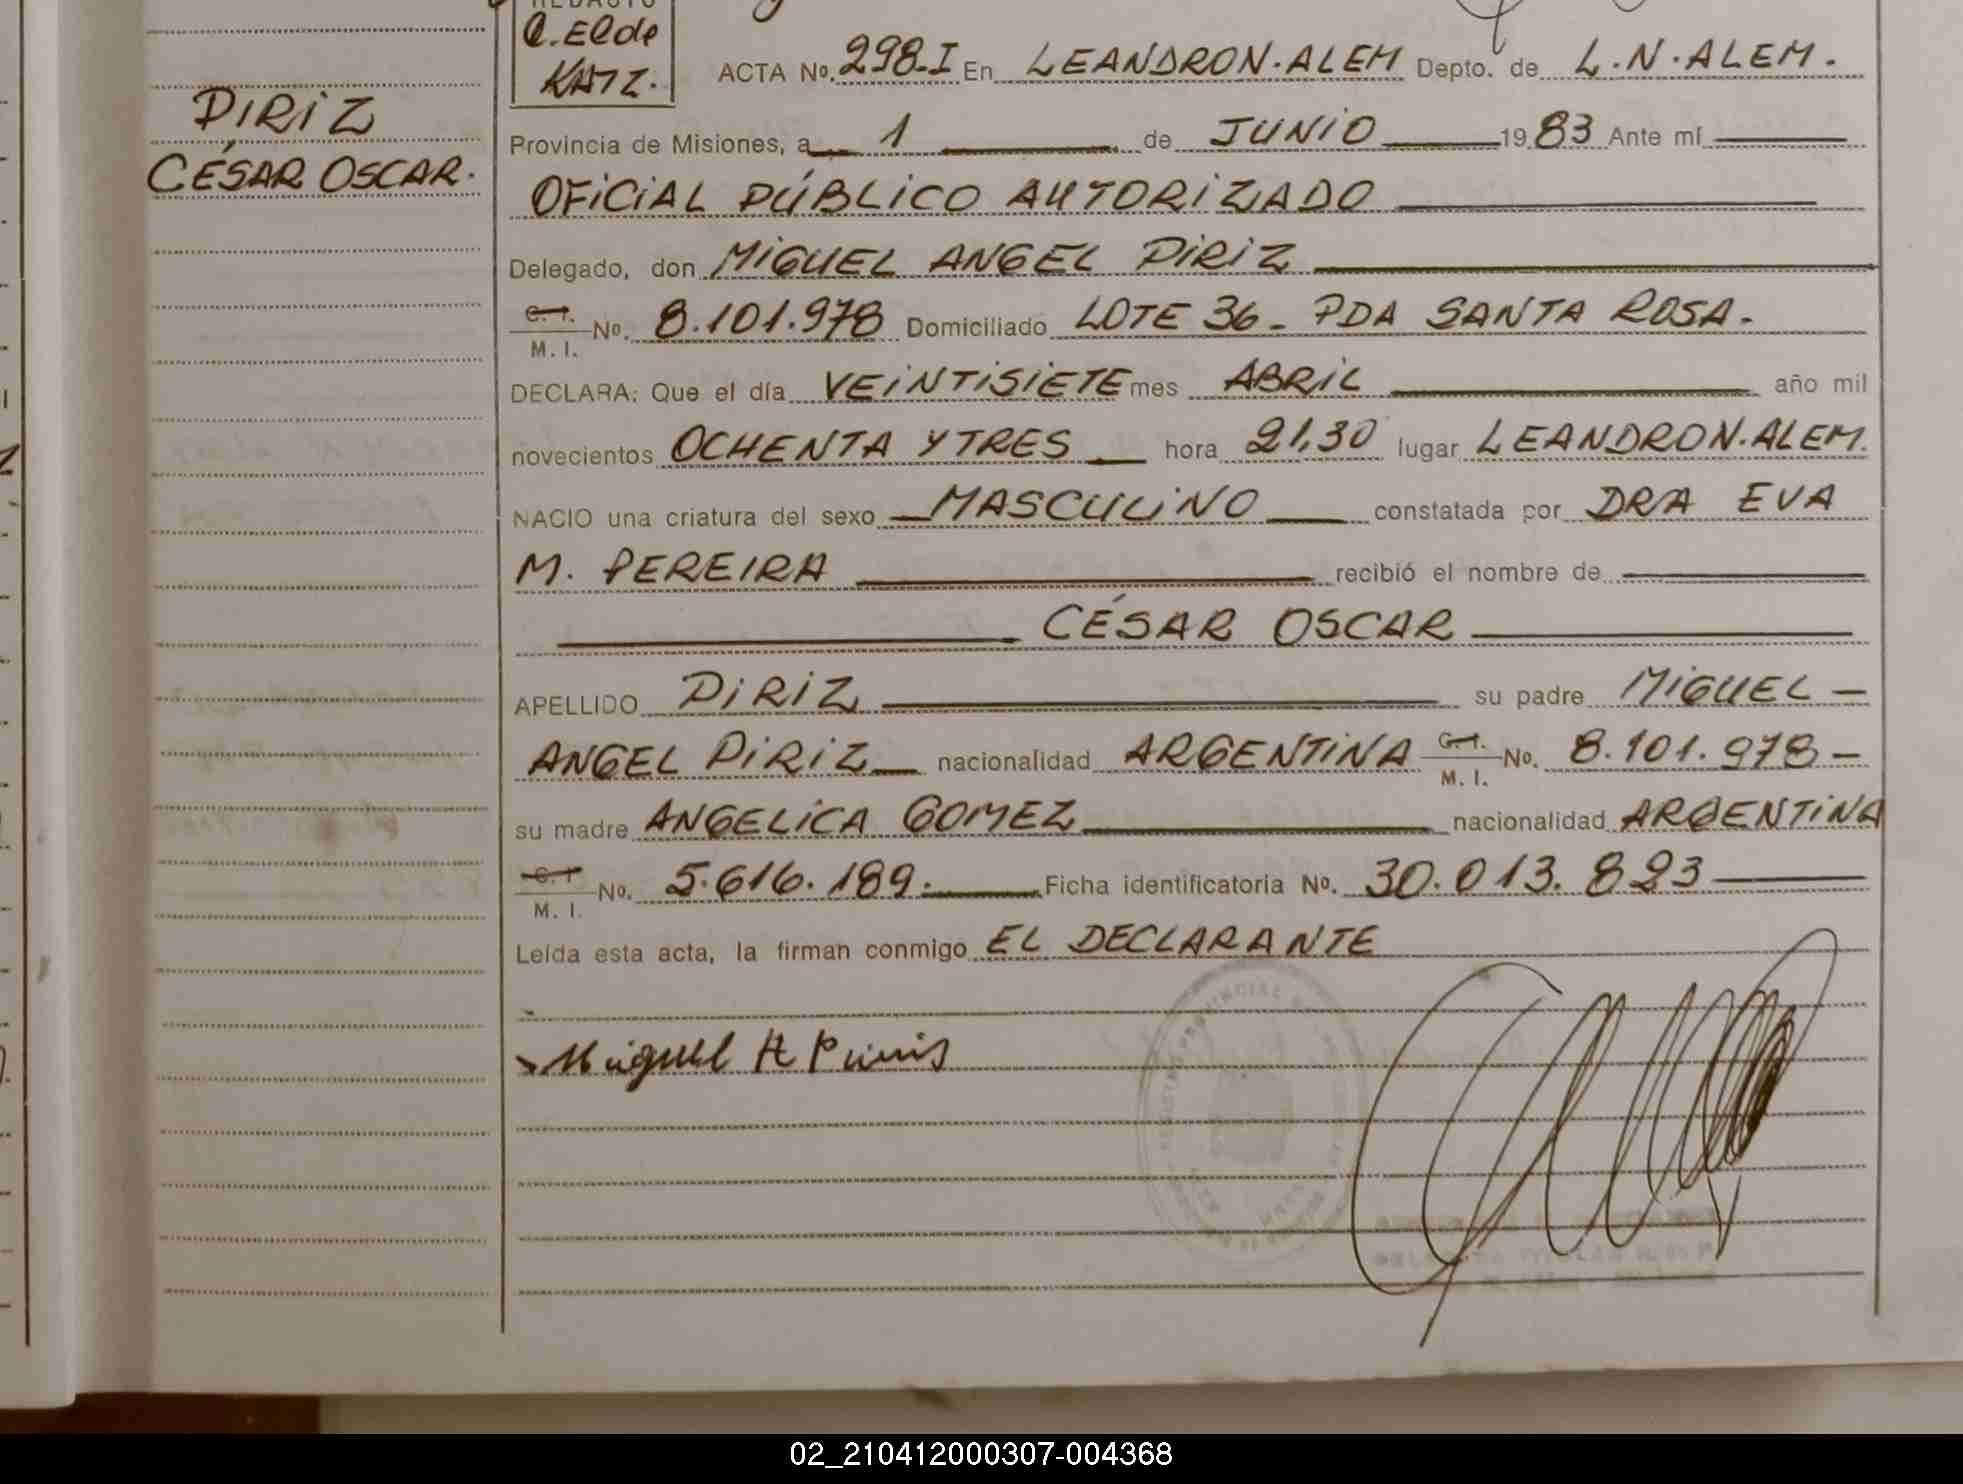 REDACTO
C. Elde
KATZ.
ACTA No. 298-I En LEANDRO N. ALEM Depto. de L. N. ALEM.
PIRIZ
CÉSAR OSCAR.
Provincia de Misiones, a 1 de JUNIO 1983 Ante mí
OFICIAL PÚBLICO AUTORIZADO
Delegado, don MIGUEL ANGEL PIRIZ
C. I.
M. I. No. 8.101.978 Domiciliado LOTE 36 - PDA SANTA ROSA.
DECLARA: Que el día VEINTISIETE mes ABRIL año mil
novecientos OCHENTA Y TRES hora 21,30 lugar LEANDRO N. ALEM.
NACIO una criatura del sexo MASCULINO constatada por DRA EVA
M. PEREIRA recibió el nombre de
CÉSAR OSCAR
APELLIDO PIRIZ su padre MIGUEL
ANGEL PIRIZ nacionalidad ARGENTINA C. I. M. I. No. 8.101.978
su madre ANGELICA GOMEZ nacionalidad ARGENTINA
C. I. M. I. No. 5.616.189. Ficha identificatoria No. 30.013.823
Leída esta acta, la firman conmigo EL DECLARANTE
Miguel A Piriis
02_210412000307-004368